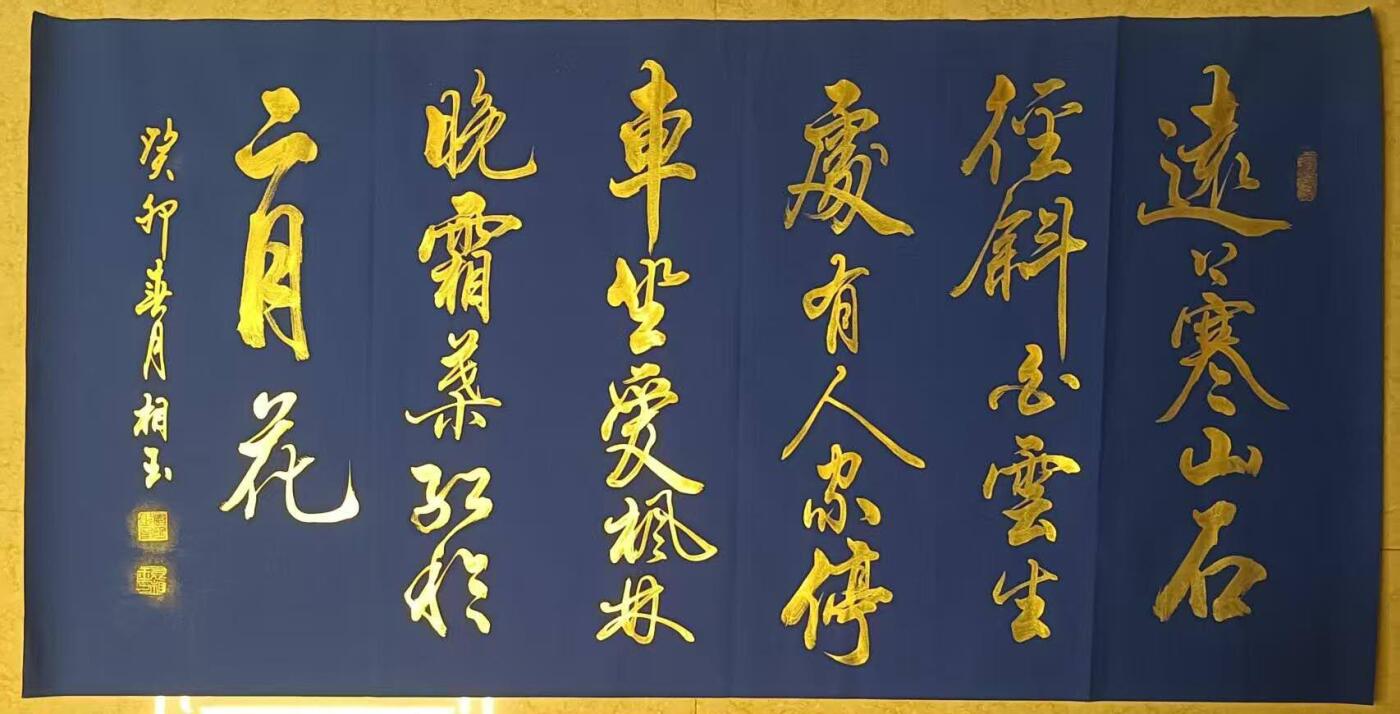 遠上寒山石
徑斜白雲生
處有人家停
車坐愛楓林
晚霜葉紅於
二月花
癸卯春月相玉